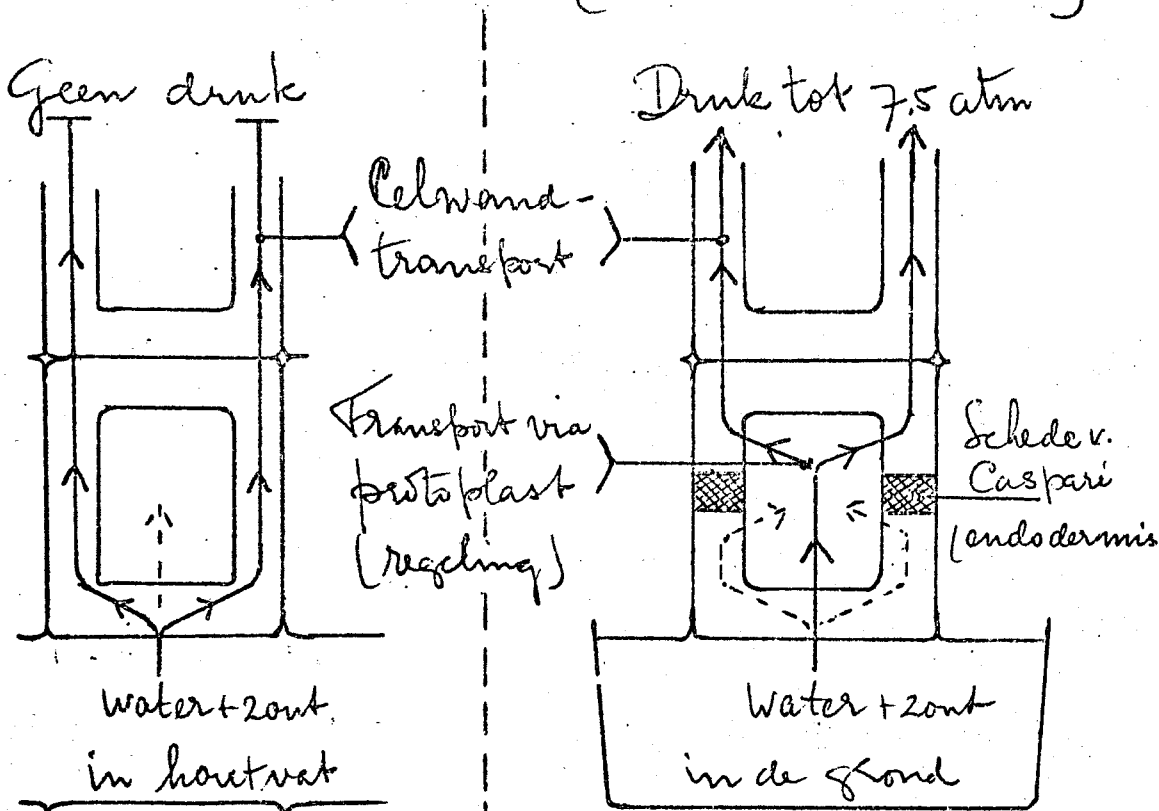 Geen druk
Druk tot 7,5 atm
Celwand-
transport
Transport via
protoplast
(regeling)
Schede v.
Caspari
(endodermis
Water+zout
in houtvat
Water+zout
in de grond